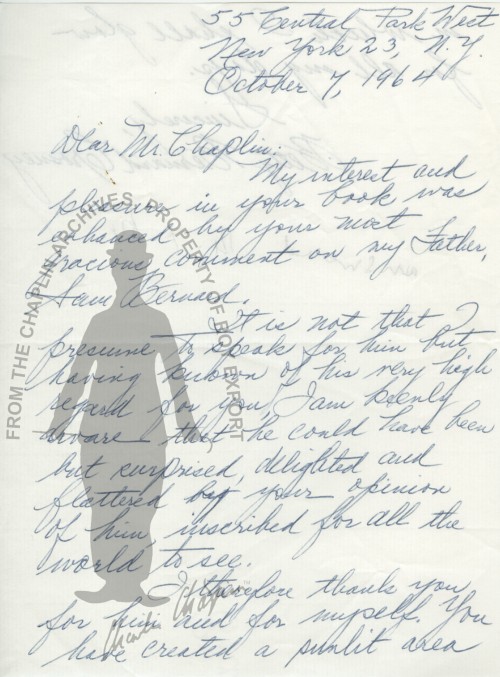 55 Central Park West
New York 23, N.Y.
October 7, 1964
Dear Mr. Chaplin:
My interest and
pleasure in your book was
enhanced by your most
gracious comment on my Father,
Sam Bernard.
It is not that I
presume to speak for him but
having known of his very high
regard for you, I am keenly
aware that he could have been
but surprised, delighted and
flattered by your opinion
of him, inscribed for all the
world to see.
I therefore thank you
for him and for myself. You
have created a sunlit area
FROM THE CHAPLIN ARCHIVES, PROPERTY OF ROY EXPORT
Charlie Chaplin